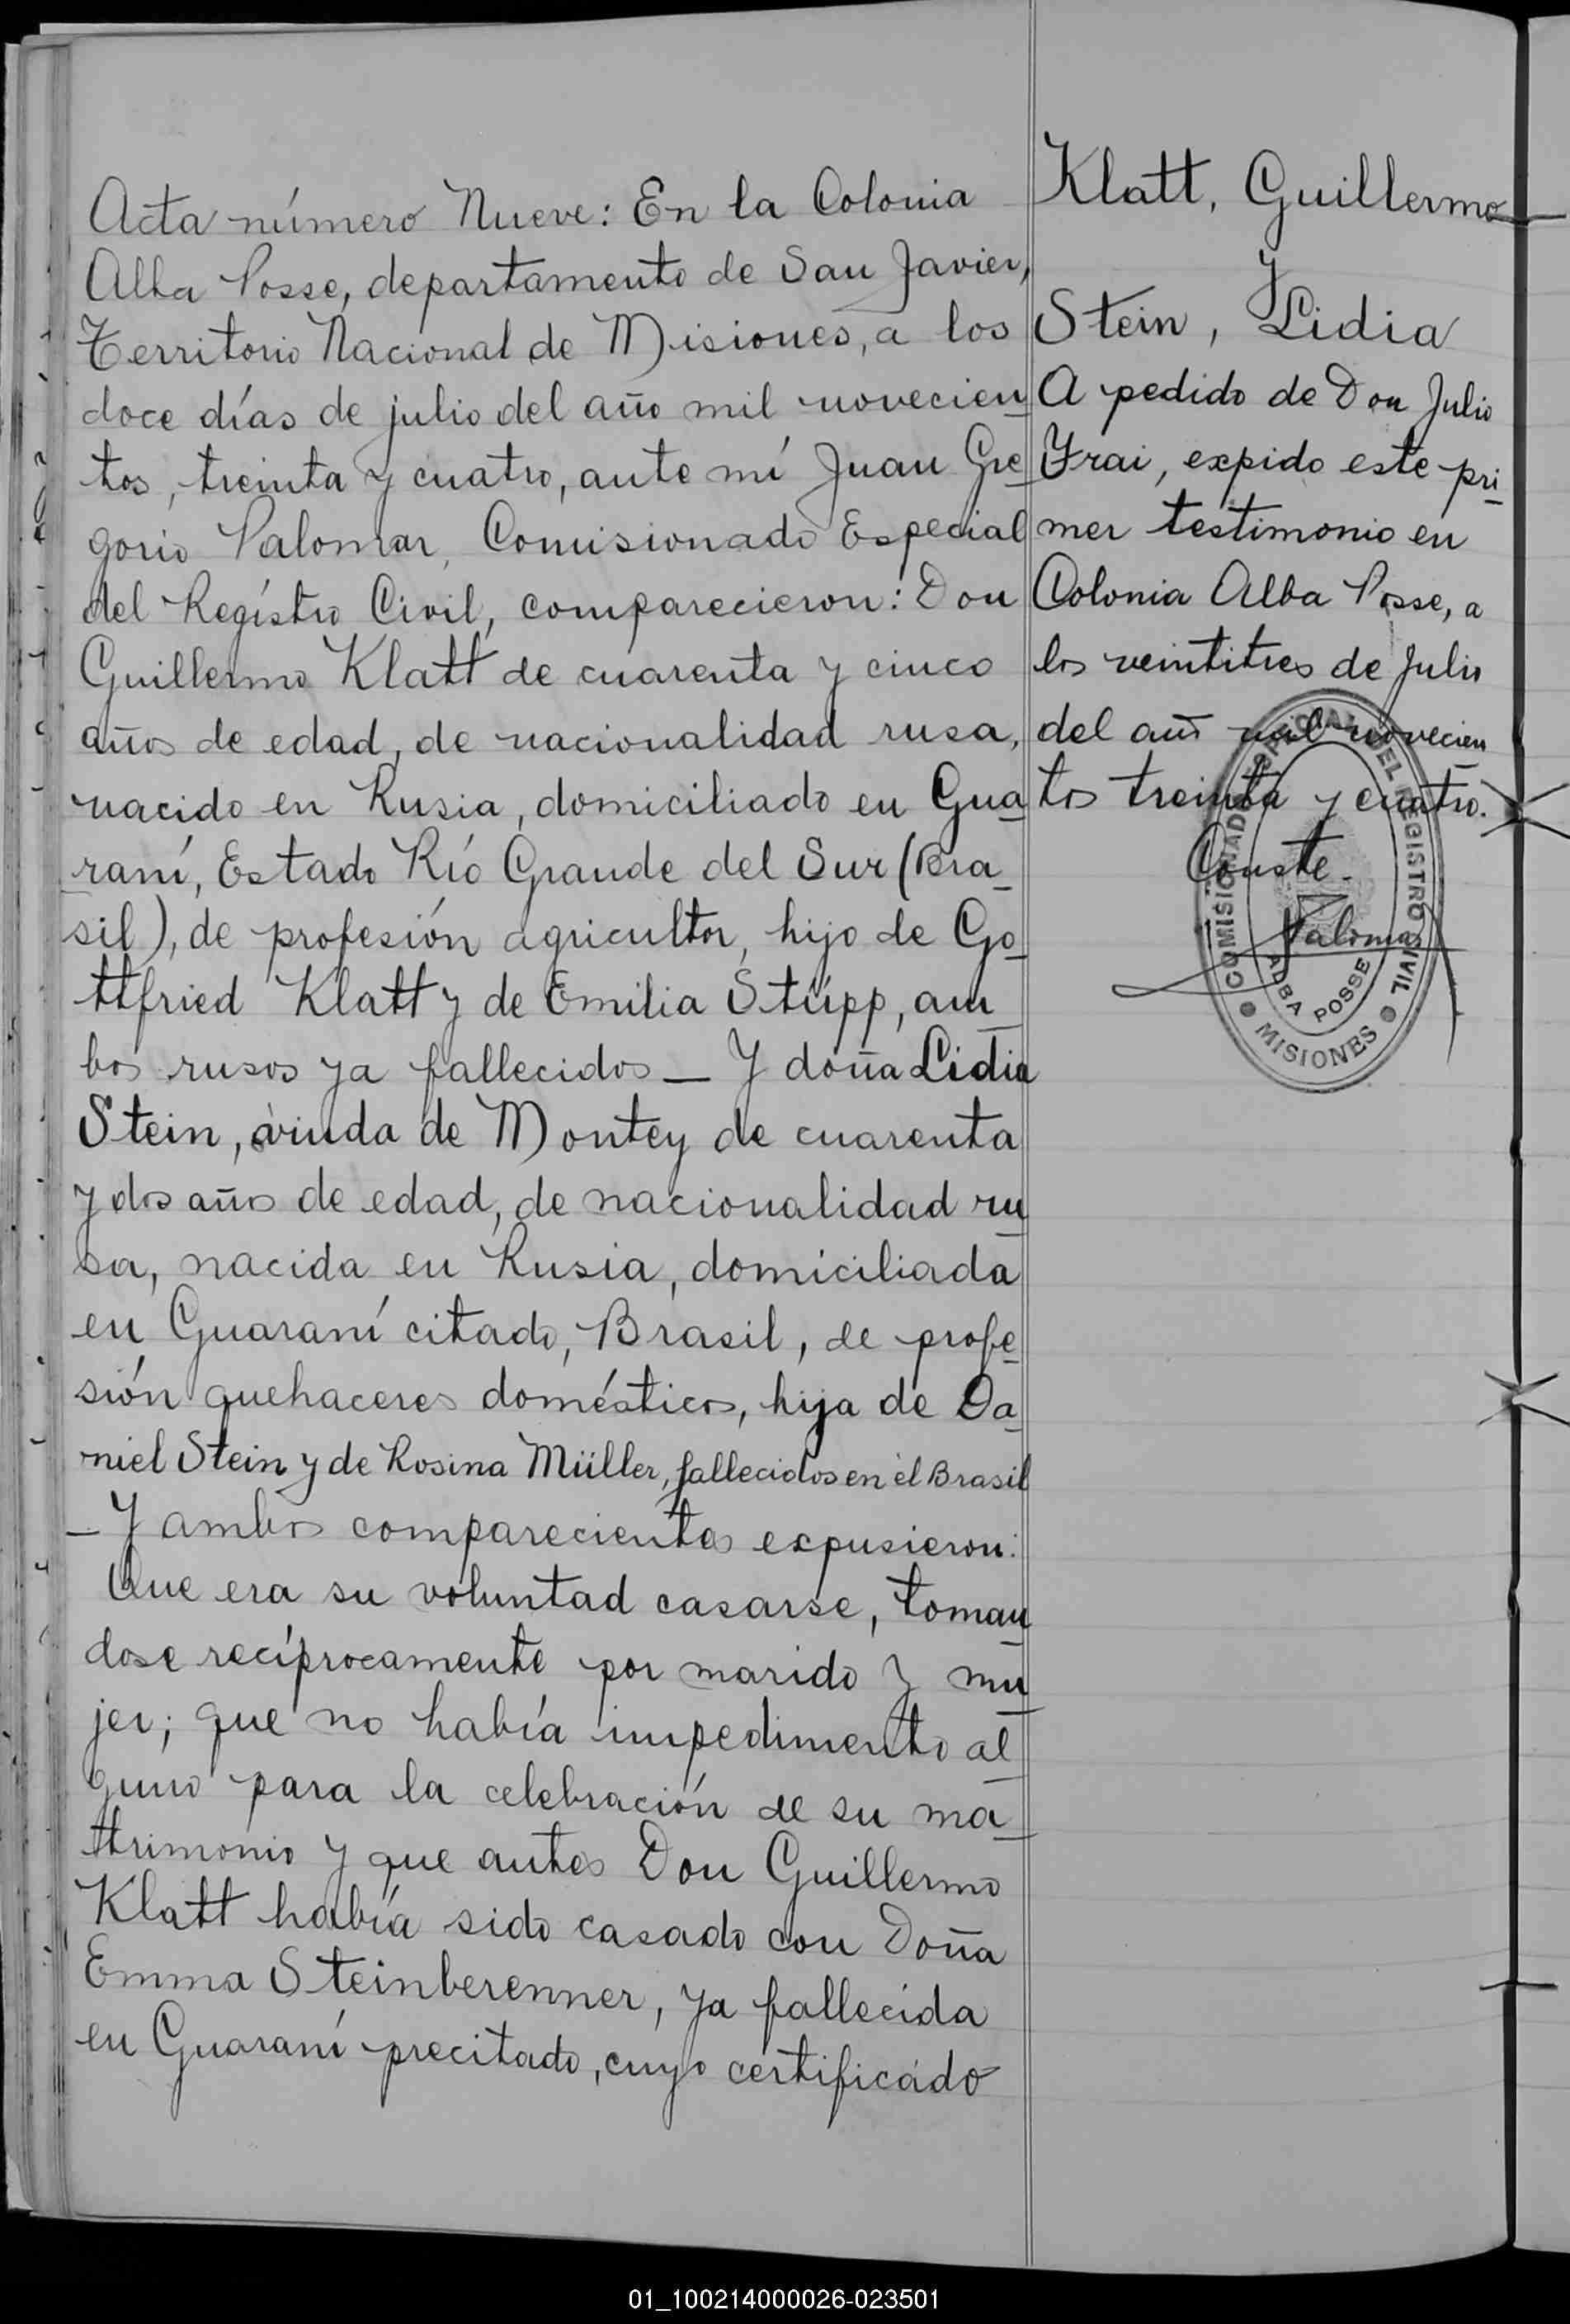 Acta número Nueve: En la Colonia
Alba Posse, departamento de San Javier,
Territorio Nacional de Misiones, a los
doce días de julio del año mil novecien
tos, treinta y cuatro, ante mí Juan Gre
gorio Palomar, Comisionado Especial
del Regístro Civil, comparecieron: Don
Guillermo Klatt de cuarenta y cinco
años de edad, de nacionalidad rusa,
nacido en Rusia, domiciliado en Gua
raní, Estado Río Grande del Sur (Bra
sil), de profesión agricultor, hijo de Go
ttfried Klatt y de Emilia Stüpp, am
bos rusos ya fallecidos — Y doña Lidia
Stein, viuda de Montey de cuarenta
y dos años de edad, de nacionalidad ru
sa, nacida en Rusia, domiciliada
en Guaraní citado, Brasil, de profe
sión quehaceres domésticos, hija de Da
niel Stein y de Rosina Müller, fallecidos en el Brasil
— Y ambos comparecientes expusieron:
Que era su voluntad casarse, toman
dose recíprocamente por marido y mu
jer; que no había impedimento al
guno para la celebración de su ma
trimonio y que antes Don Guillermo
Klatt había sido casado con Doña
Emma Steinberenner, ya fallecida
en Guaraní precitado, cuyo certificado
Klatt, Guillermo
y
Stein, Lidia
A pedido de Don Julio
Yrai, expido este pri
mer testimonio en
Colonia Alba Posse, a
los veintitres de Julio
del año mil novecien
tos treinta y cuatro.
Conste.
Palomar
COMISIONADO ESPECIAL DEL REGISTRO CIVIL
ALBA POSSE
MISIONES
01_100214000026-023501